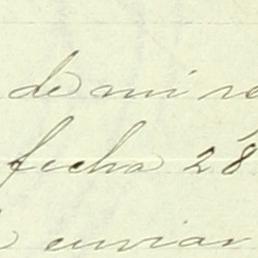 de mi
fecha 28
enviar